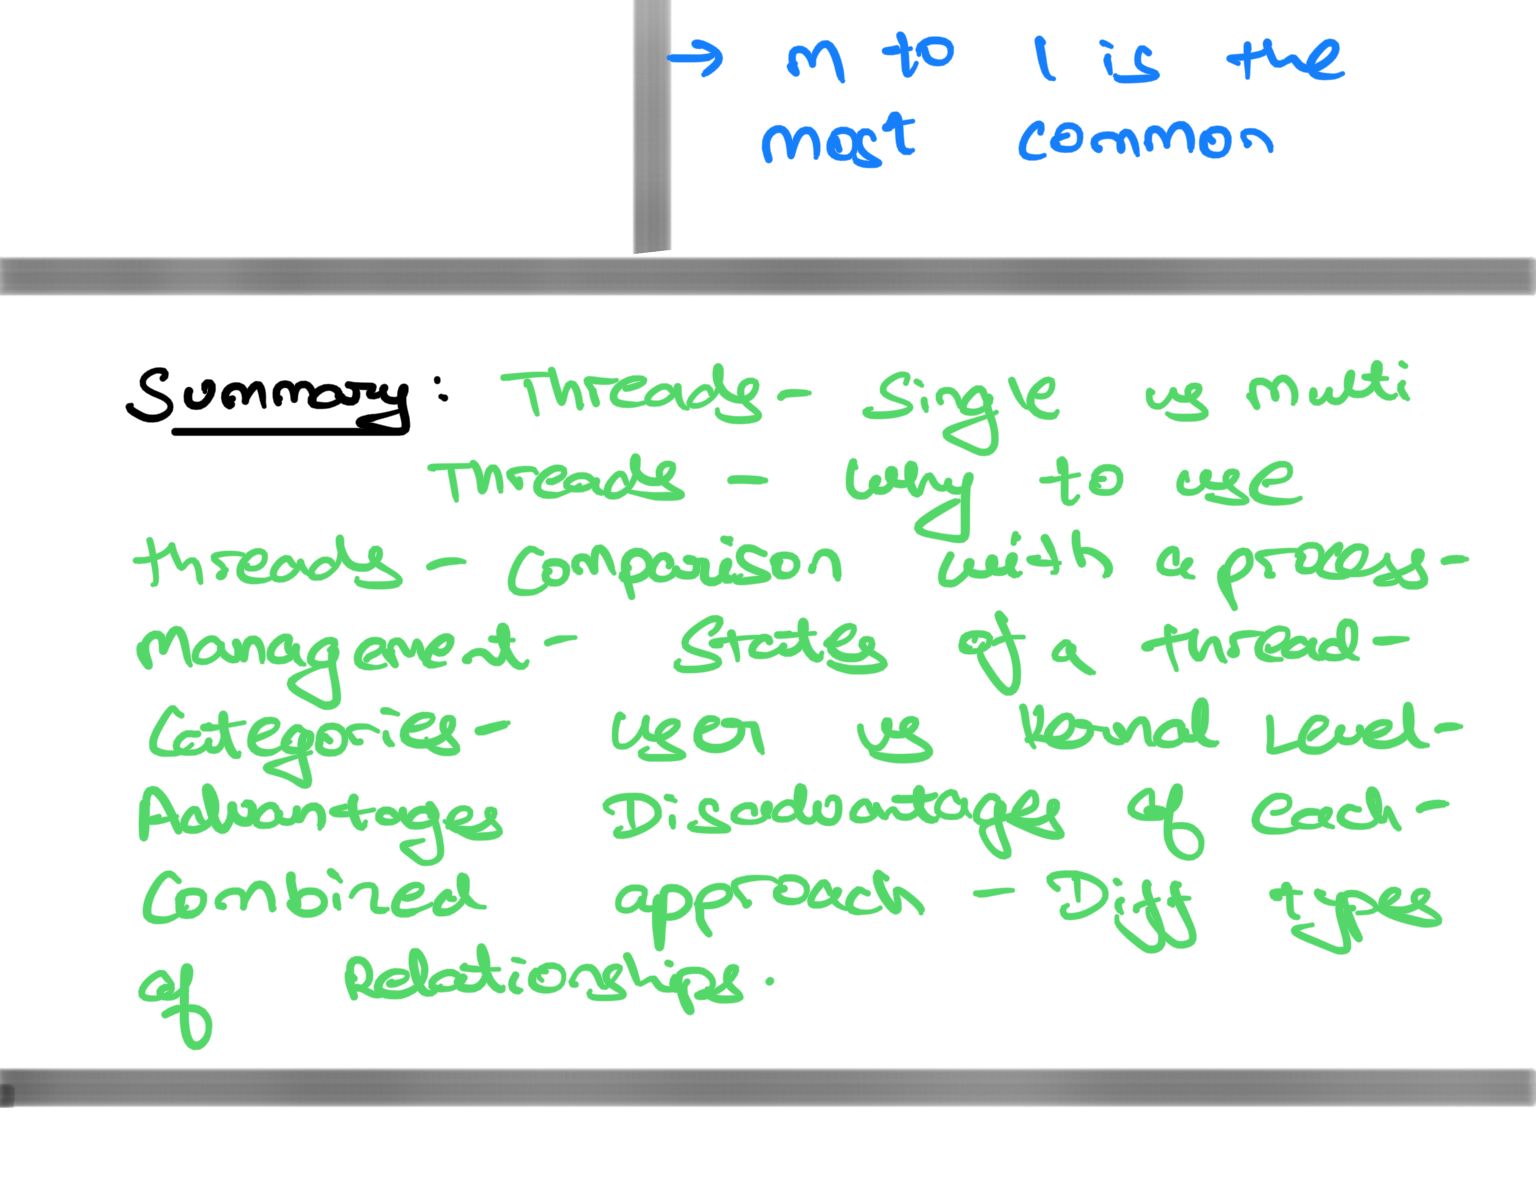 → m to 1 is the
most common
Summary: Threads - Single vs Multi
Threads - Why to use
threads - Comparison with a process -
Management - States of a thread -
Categories - User vs Kernal Level -
Advantages Disadvantages of each -
Combined approach - Diff types
of Relationships.